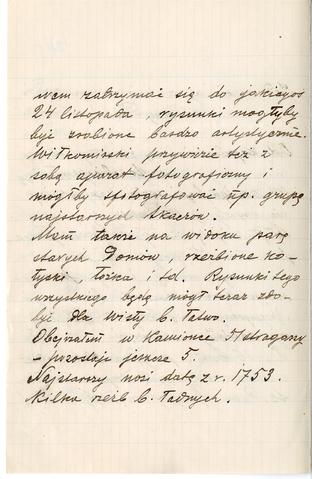 wam zatrzymać się do jakiegoś
24 listopada, rysunki mogłyby
być zrobione bardzo artystycznie.
Witkomirski przywiezie też z
sobą aparat fotograficzny i
mógłby sfotografować np. grupę
najstarszych tkaczów.
Mam także na widoku parę
starych Domów, rzeźbione ko-
łyski, łóżka i td. Rysunki tego
wszystkiego będę mógł teraz zdo-
być dla Wisły b. łatwo.
Obejrzałem w Kamionce Astragany
- pozostaje jeszcze 5.
Najstarszy nosi datę z r. 1753.
Kilka rzeźb b. ładnych.